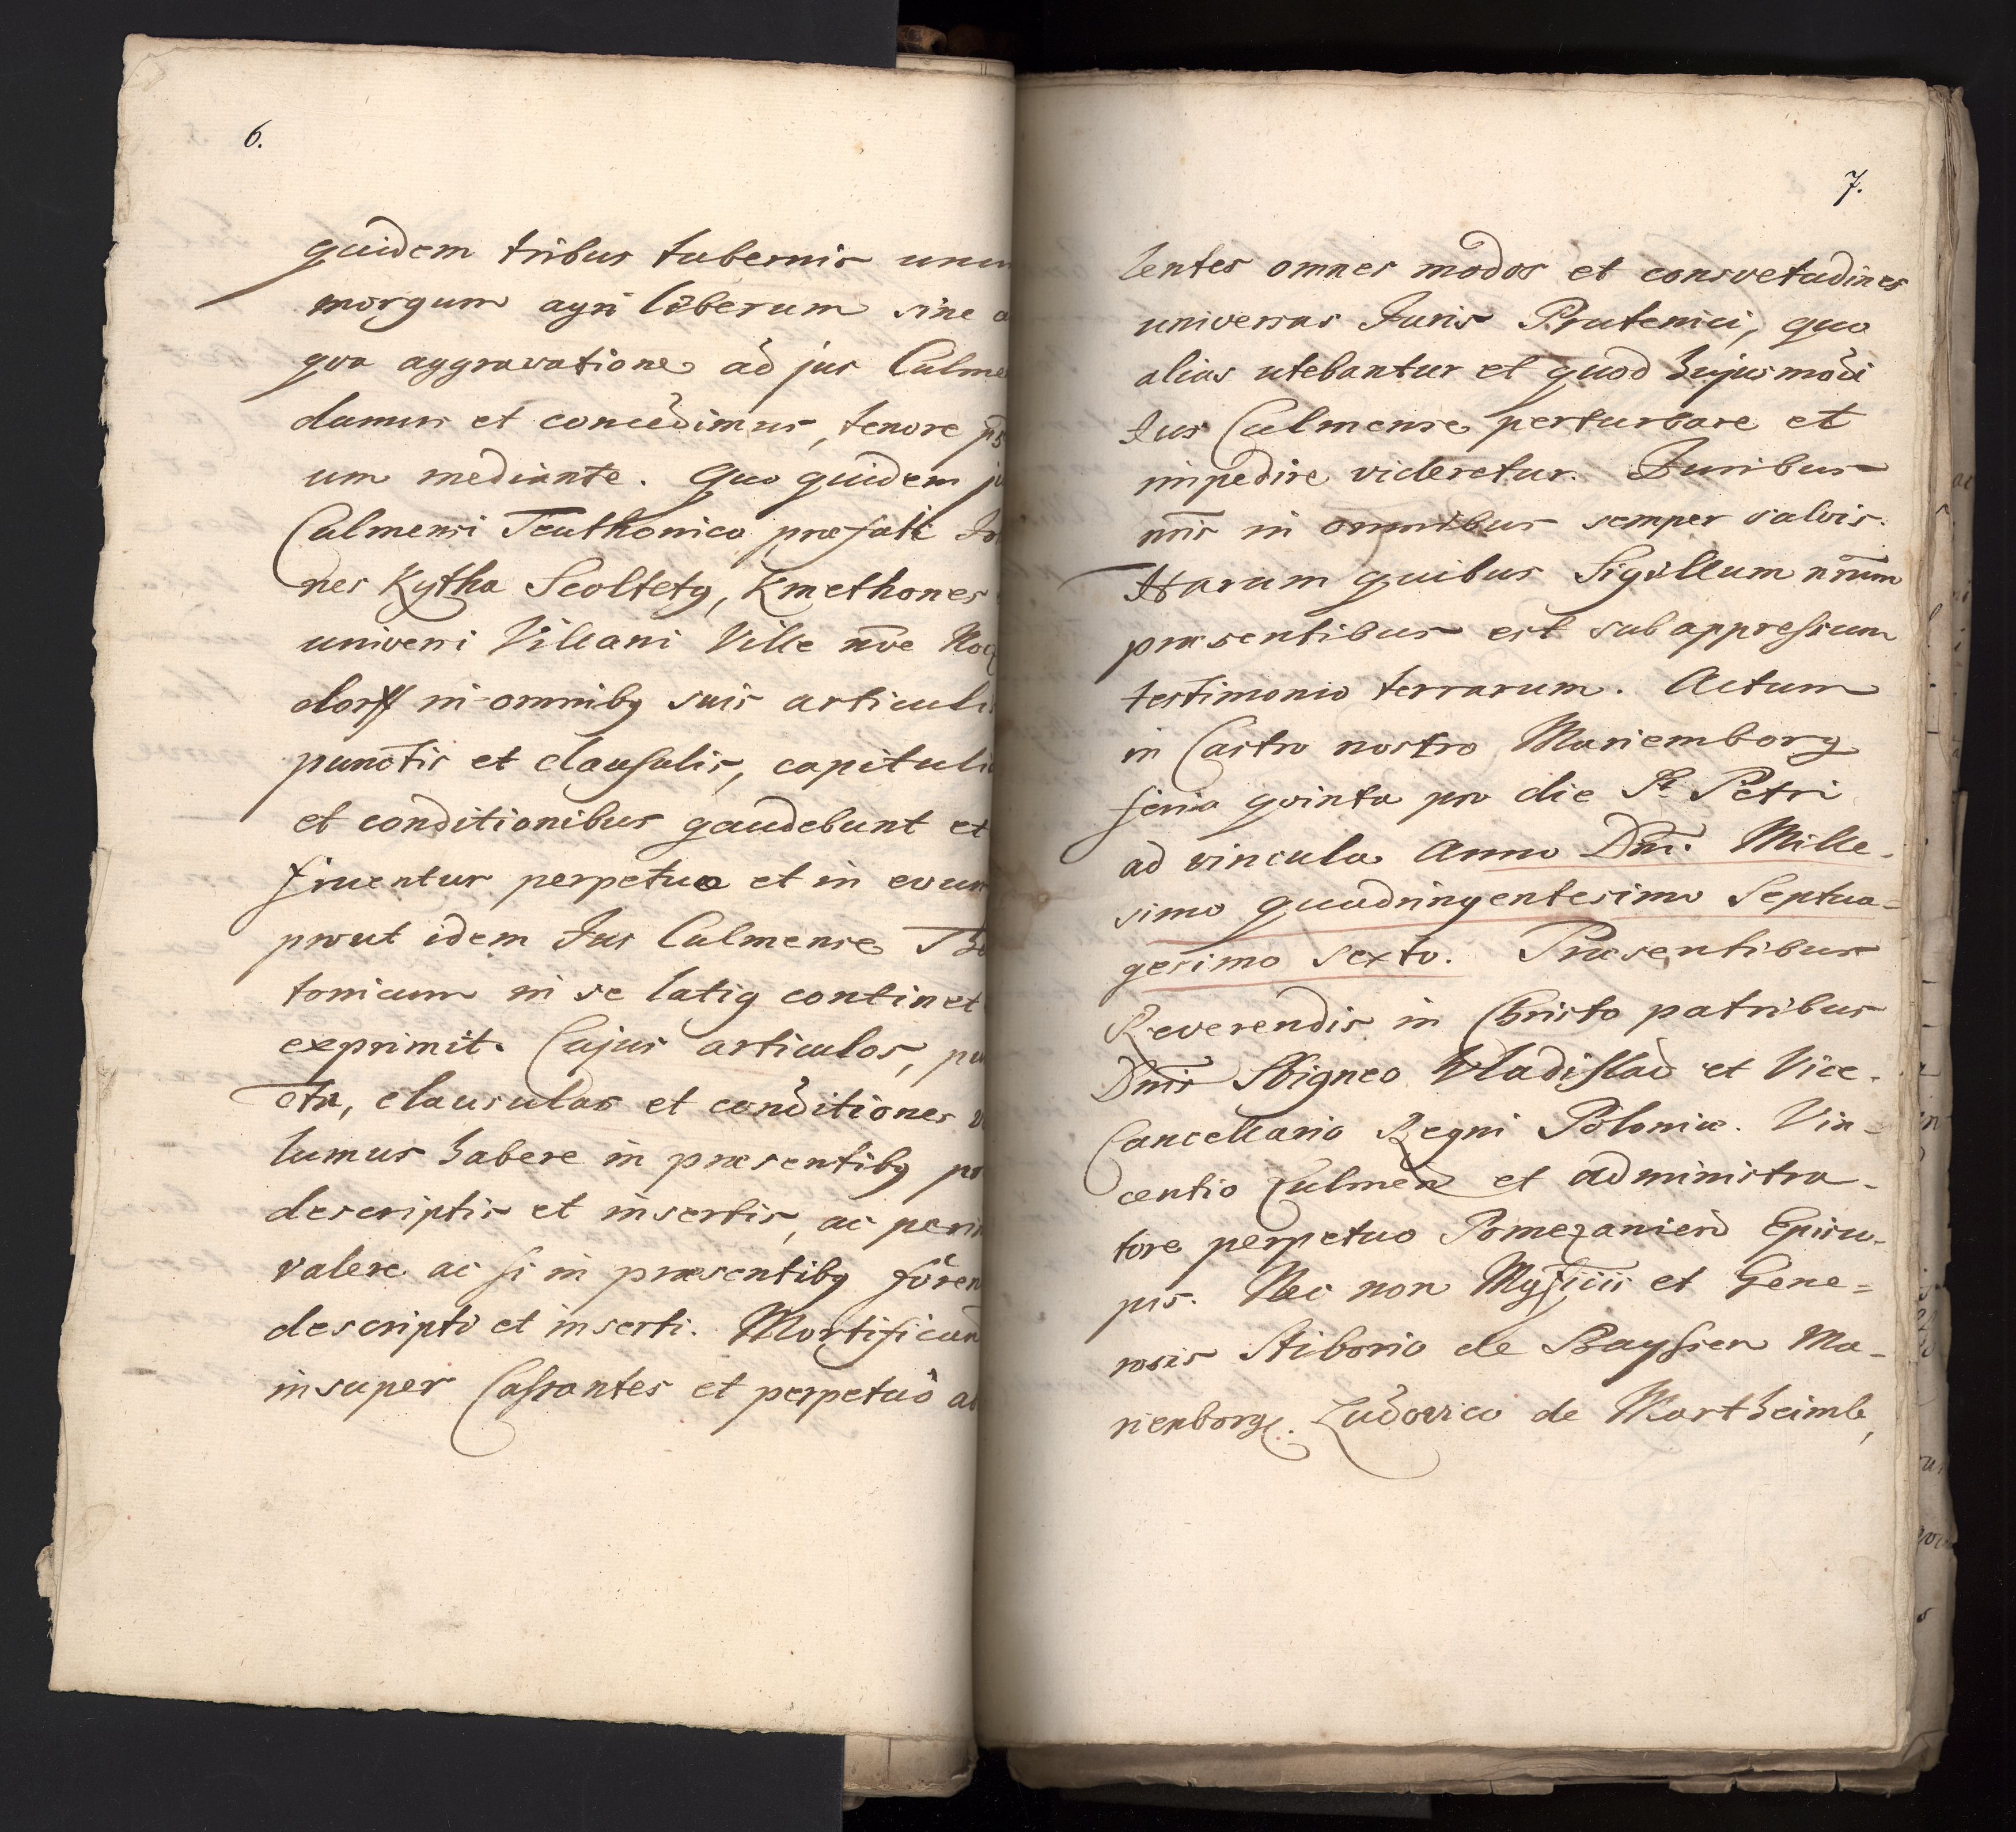 6.
quidem tribus tabernis unu
morgum agri liberum sine a
qva aggravatione ad jus Culme
damus et concedimus, tenore
um mediante. Quo quidem j
Culmensi Teuthonico præfati Jo
nes Kytha Scoltety, Kmethones
universi Villani Ville nrē
dorff in omniby suis articulis
punctis et clausulis, capitulis
et conditionibus gaudebunt et
fruentur perpetuo et in evum
prout idem Jus Culmense
tonicum in se latiq continet
exprimit. Cujus articulos, pu
cta, clausulas et conditiones v
lumus habere in præsentiby pr
descriptis et insertis, ac perin
valere ac si in præsentiby foren
descripti et inserti. Mortifican
insuper Cassantes et perpetuò ab
7.
lentes omnes modos et consvetudines
universas Juris Prutenici, quo
alias utebantur et quod hujusmodi
Jus Culmense perturbare et
impedire videretur. Juribus
nr̄is in omnibus semper salvis.
Harum quibus Sigillum nr̄um
præsentibus est subappressum
testimonio terrarum. Actum
in Castro nostro Mariemborg
feria qvinta pro die St. Petri
ad vincula Anno Dni. Mille-
simo quadringentesimo Septua-
gesimo sexto. Præsentibus
Reverendis in Christo patribus
Dnis Sbigneo Vladislad et Vice-
Cancellario Regni Poloniæ. Vin-
centio Culmen et administra-
tore perpetuo Pomezanien Episco-
pis. Nec non Mgficiis et Gene=
rosis Stiborio de Bayssen Ma-
rienborg. Ludovico de Mortheimb,